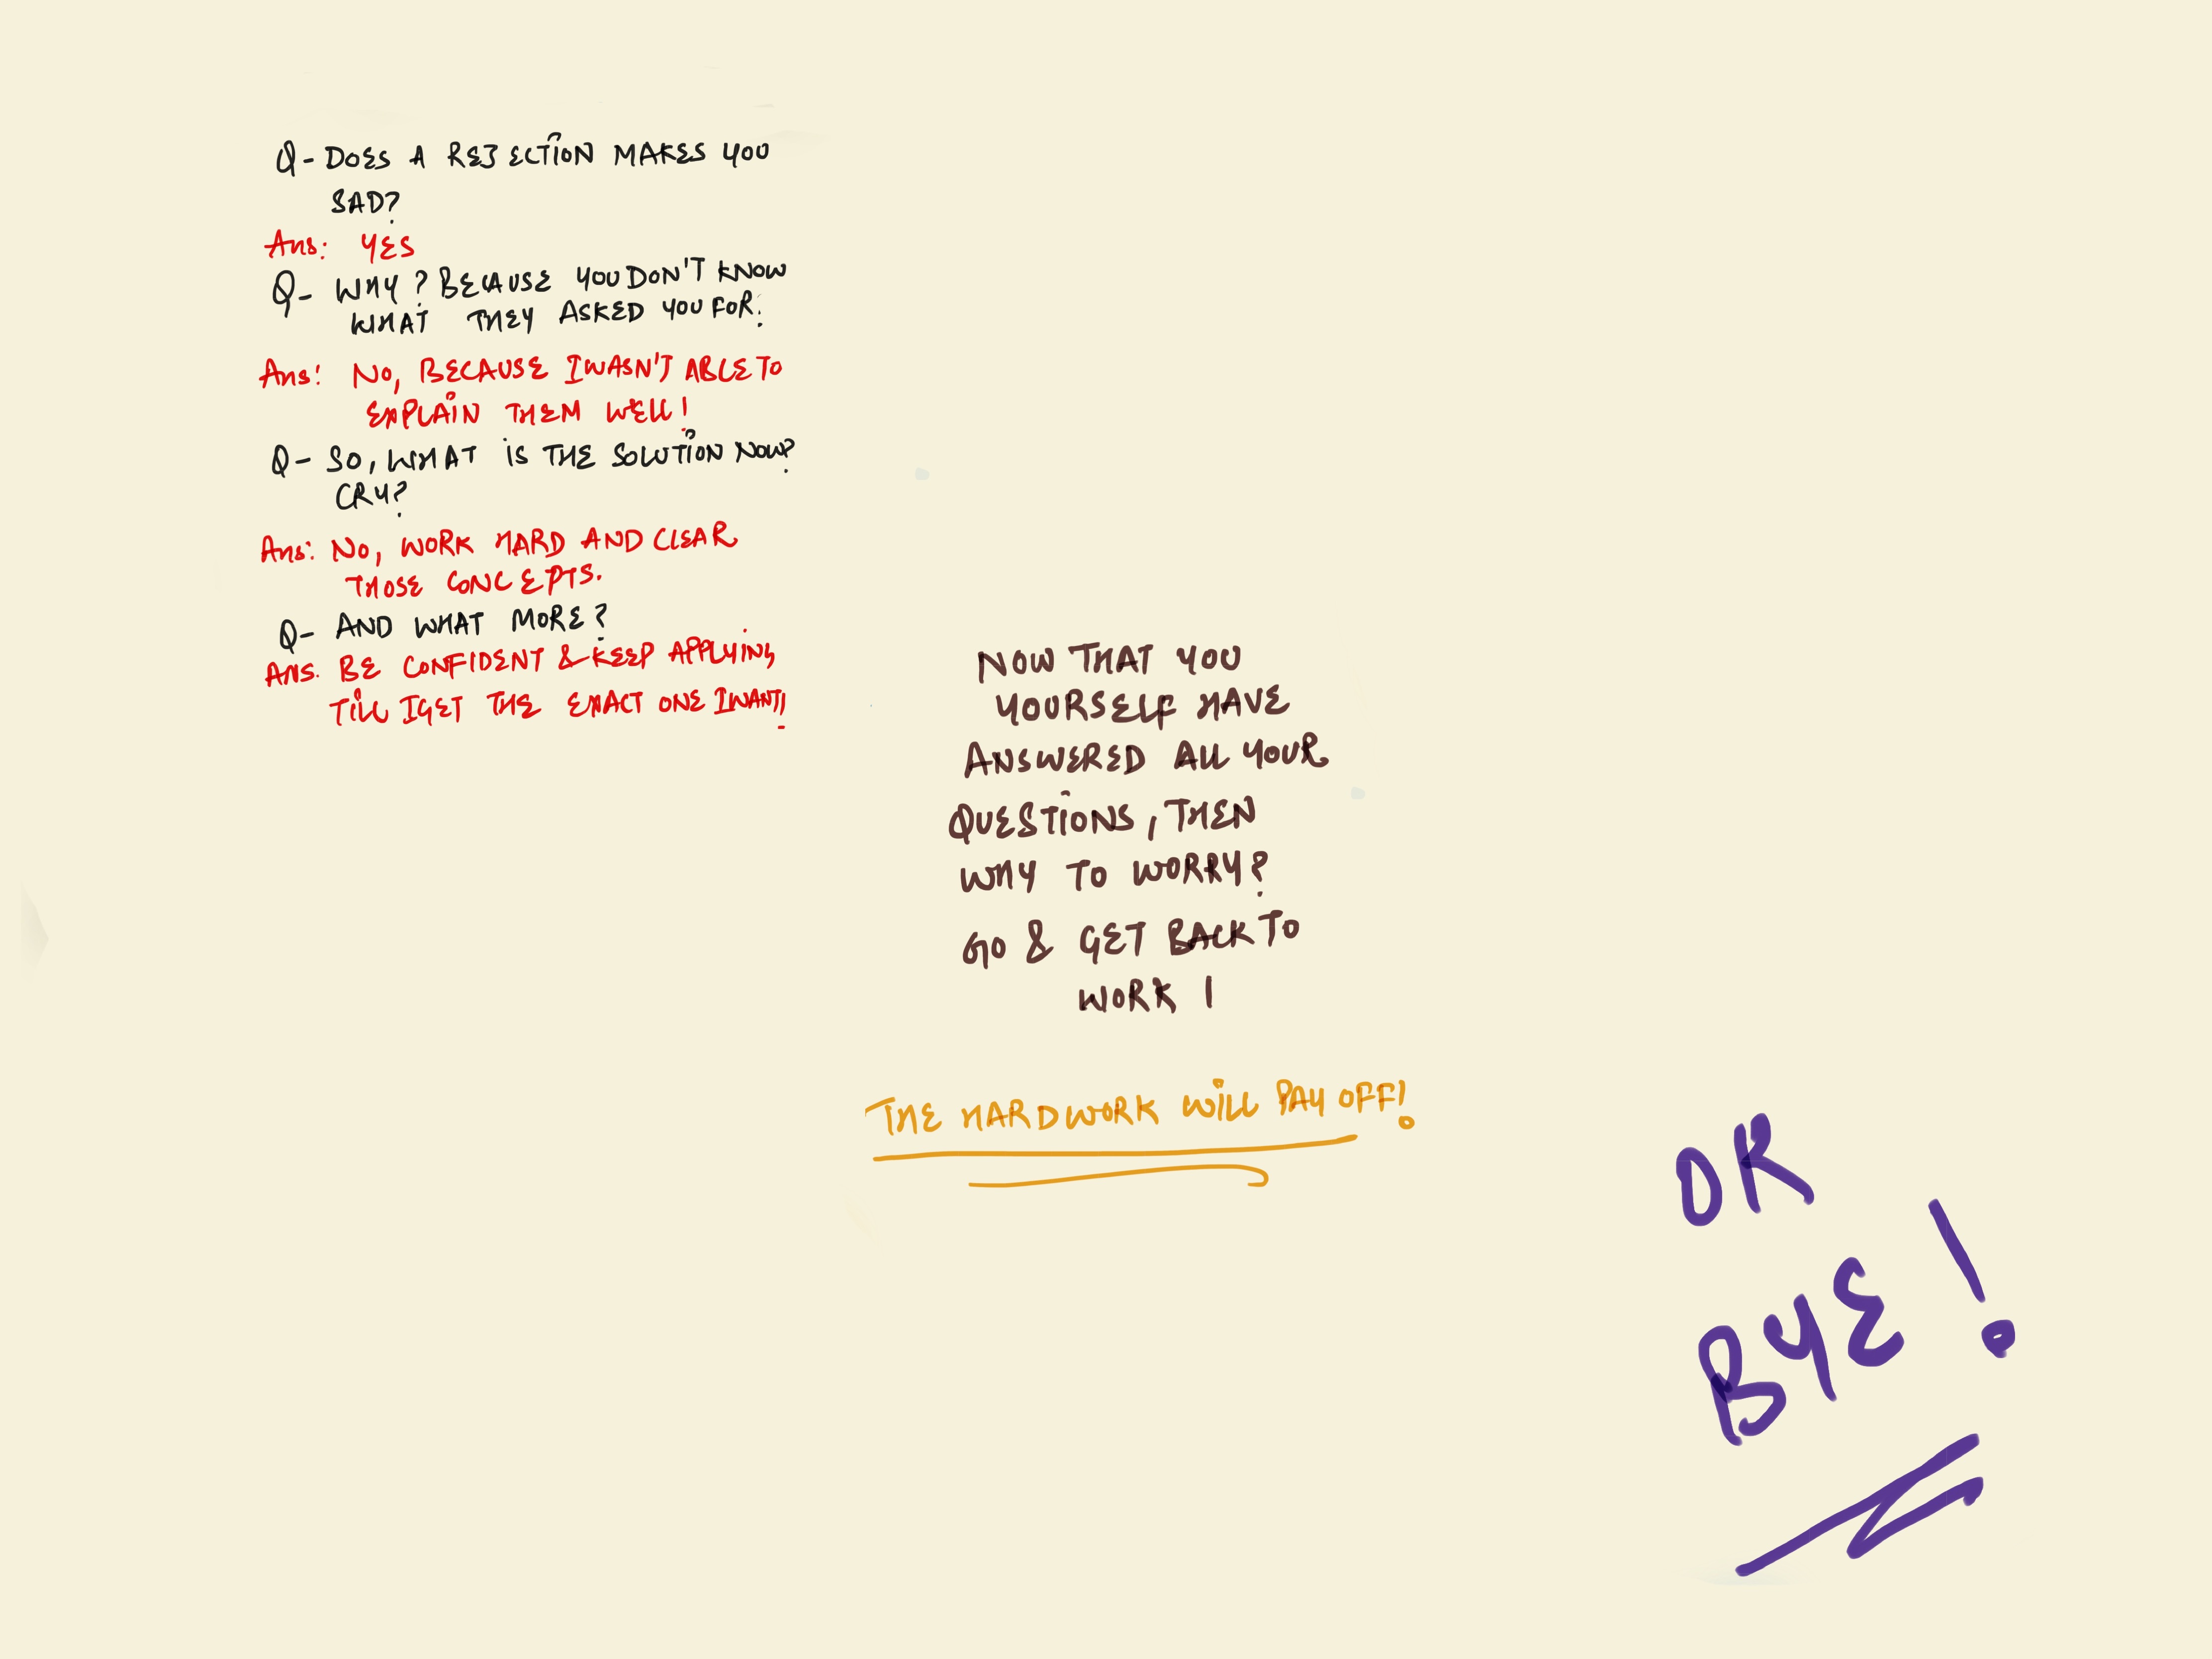 Q- DOES A REJECTION MAKES YOU
SAD?
Ans: YES
Q- WHY? BECAUSE YOU DON'T KNOW
WHAT THEY ASKED YOU FOR.
Ans: NO, BECAUSE I WASN'T ABLE TO
EXPLAIN THEM WELL!
Q- SO, WHAT IS THE SOLUTION NOW?
CRY?
Ans: NO, WORK HARD AND CLEAR
THOSE CONCEPTS.
Q- AND WHAT MORE?
ANS. BE CONFIDENT & KEEP APPLYING
TILL I GET THE EXACT ONE I WANT!
NOW THAT YOU
YOURSELF HAVE
ANSWERED ALL YOUR
QUESTIONS, THEN
WHY TO WORRY?
GO & GET BACK TO
WORK!
THE HARDWORK WILL PAY OFF!
OK
BYE!